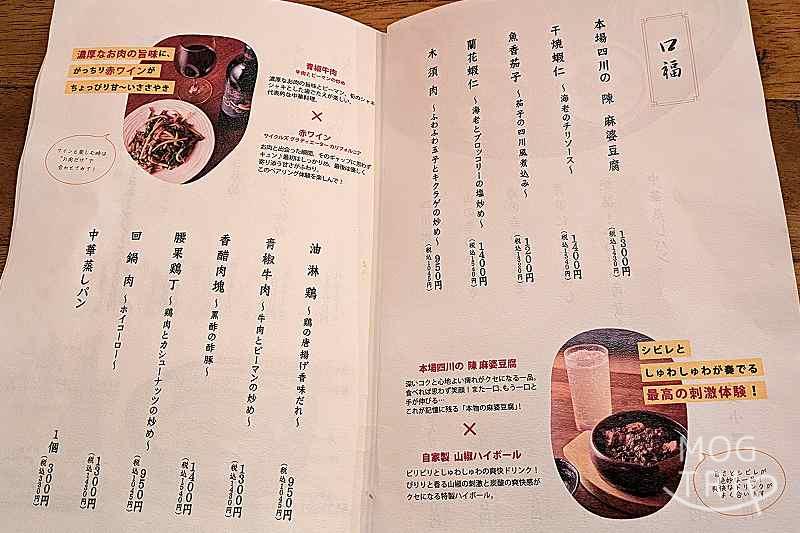 口福
本場四川の 陳 麻婆豆腐
1300円
(税込1430円)
干焼蝦仁 ～海老のチリソース～
1400円
(税込1540円)
魚香茄子 ～茄子の四川風煮込み～
1200円
(税込1320円)
蘭花蝦仁 ～海老とブロッコリーの塩炒め～
1400円
(税込1540円)
木須肉 ～ふわふわ玉子とキクラゲの炒め～
950円
(税込1045円)
シビレと
しゅわしゅわが奏でる
最高の刺激体験！
本場四川の 陳 麻婆豆腐
深いコクと心地よい痺れがクセになる一品。
食べれば思わず笑顔！また一口、もう一口と
手が伸びる…
これが記憶に残る「本物の麻婆豆腐」！
×
自家製 山椒ハイボール
ピリピリとしゅわしゅわの爽快ドリンク！
ぴりりと香る山椒の刺激と炭酸の爽快感が
クセになる特製ハイボール。
MOG
濃厚なお肉の旨味に、
がっちり赤ワインが
ちょっぴり甘〜いささやき
ワインを楽しむ時は
"お肉だけ"で
合わせてみて！
青椒牛肉
牛肉とピーマンの炒め
濃厚なお肉の旨味とピーマン、筍のシャキ
シャキとした歯ごたえが楽しい、
代表的な中華料理。
×
赤ワイン
サイクルズ グラディエーター カリフォルニア
お肉と出会った瞬間、そのギャップに思わず
キュン！最初はしっかりめ、最後は優しく
寄り添う甘さがふわり。
このペアリング体験を楽しんで！
油淋鶏 ～鶏の唐揚げ香味だれ～
950円
(税込1045円)
青椒牛肉 ～牛肉とピーマンの炒め～
1300円
(税込1430円)
香醋肉塊 ～黒酢の酢豚～
1400円
(税込1540円)
腰果鶏丁 ～鶏肉とカシューナッツの炒め～
950円
(税込1045円)
回鍋肉 ～ホイコーロー～
1300円
(税込1430円)
中華蒸しパン
1個 300円
(税込330円)